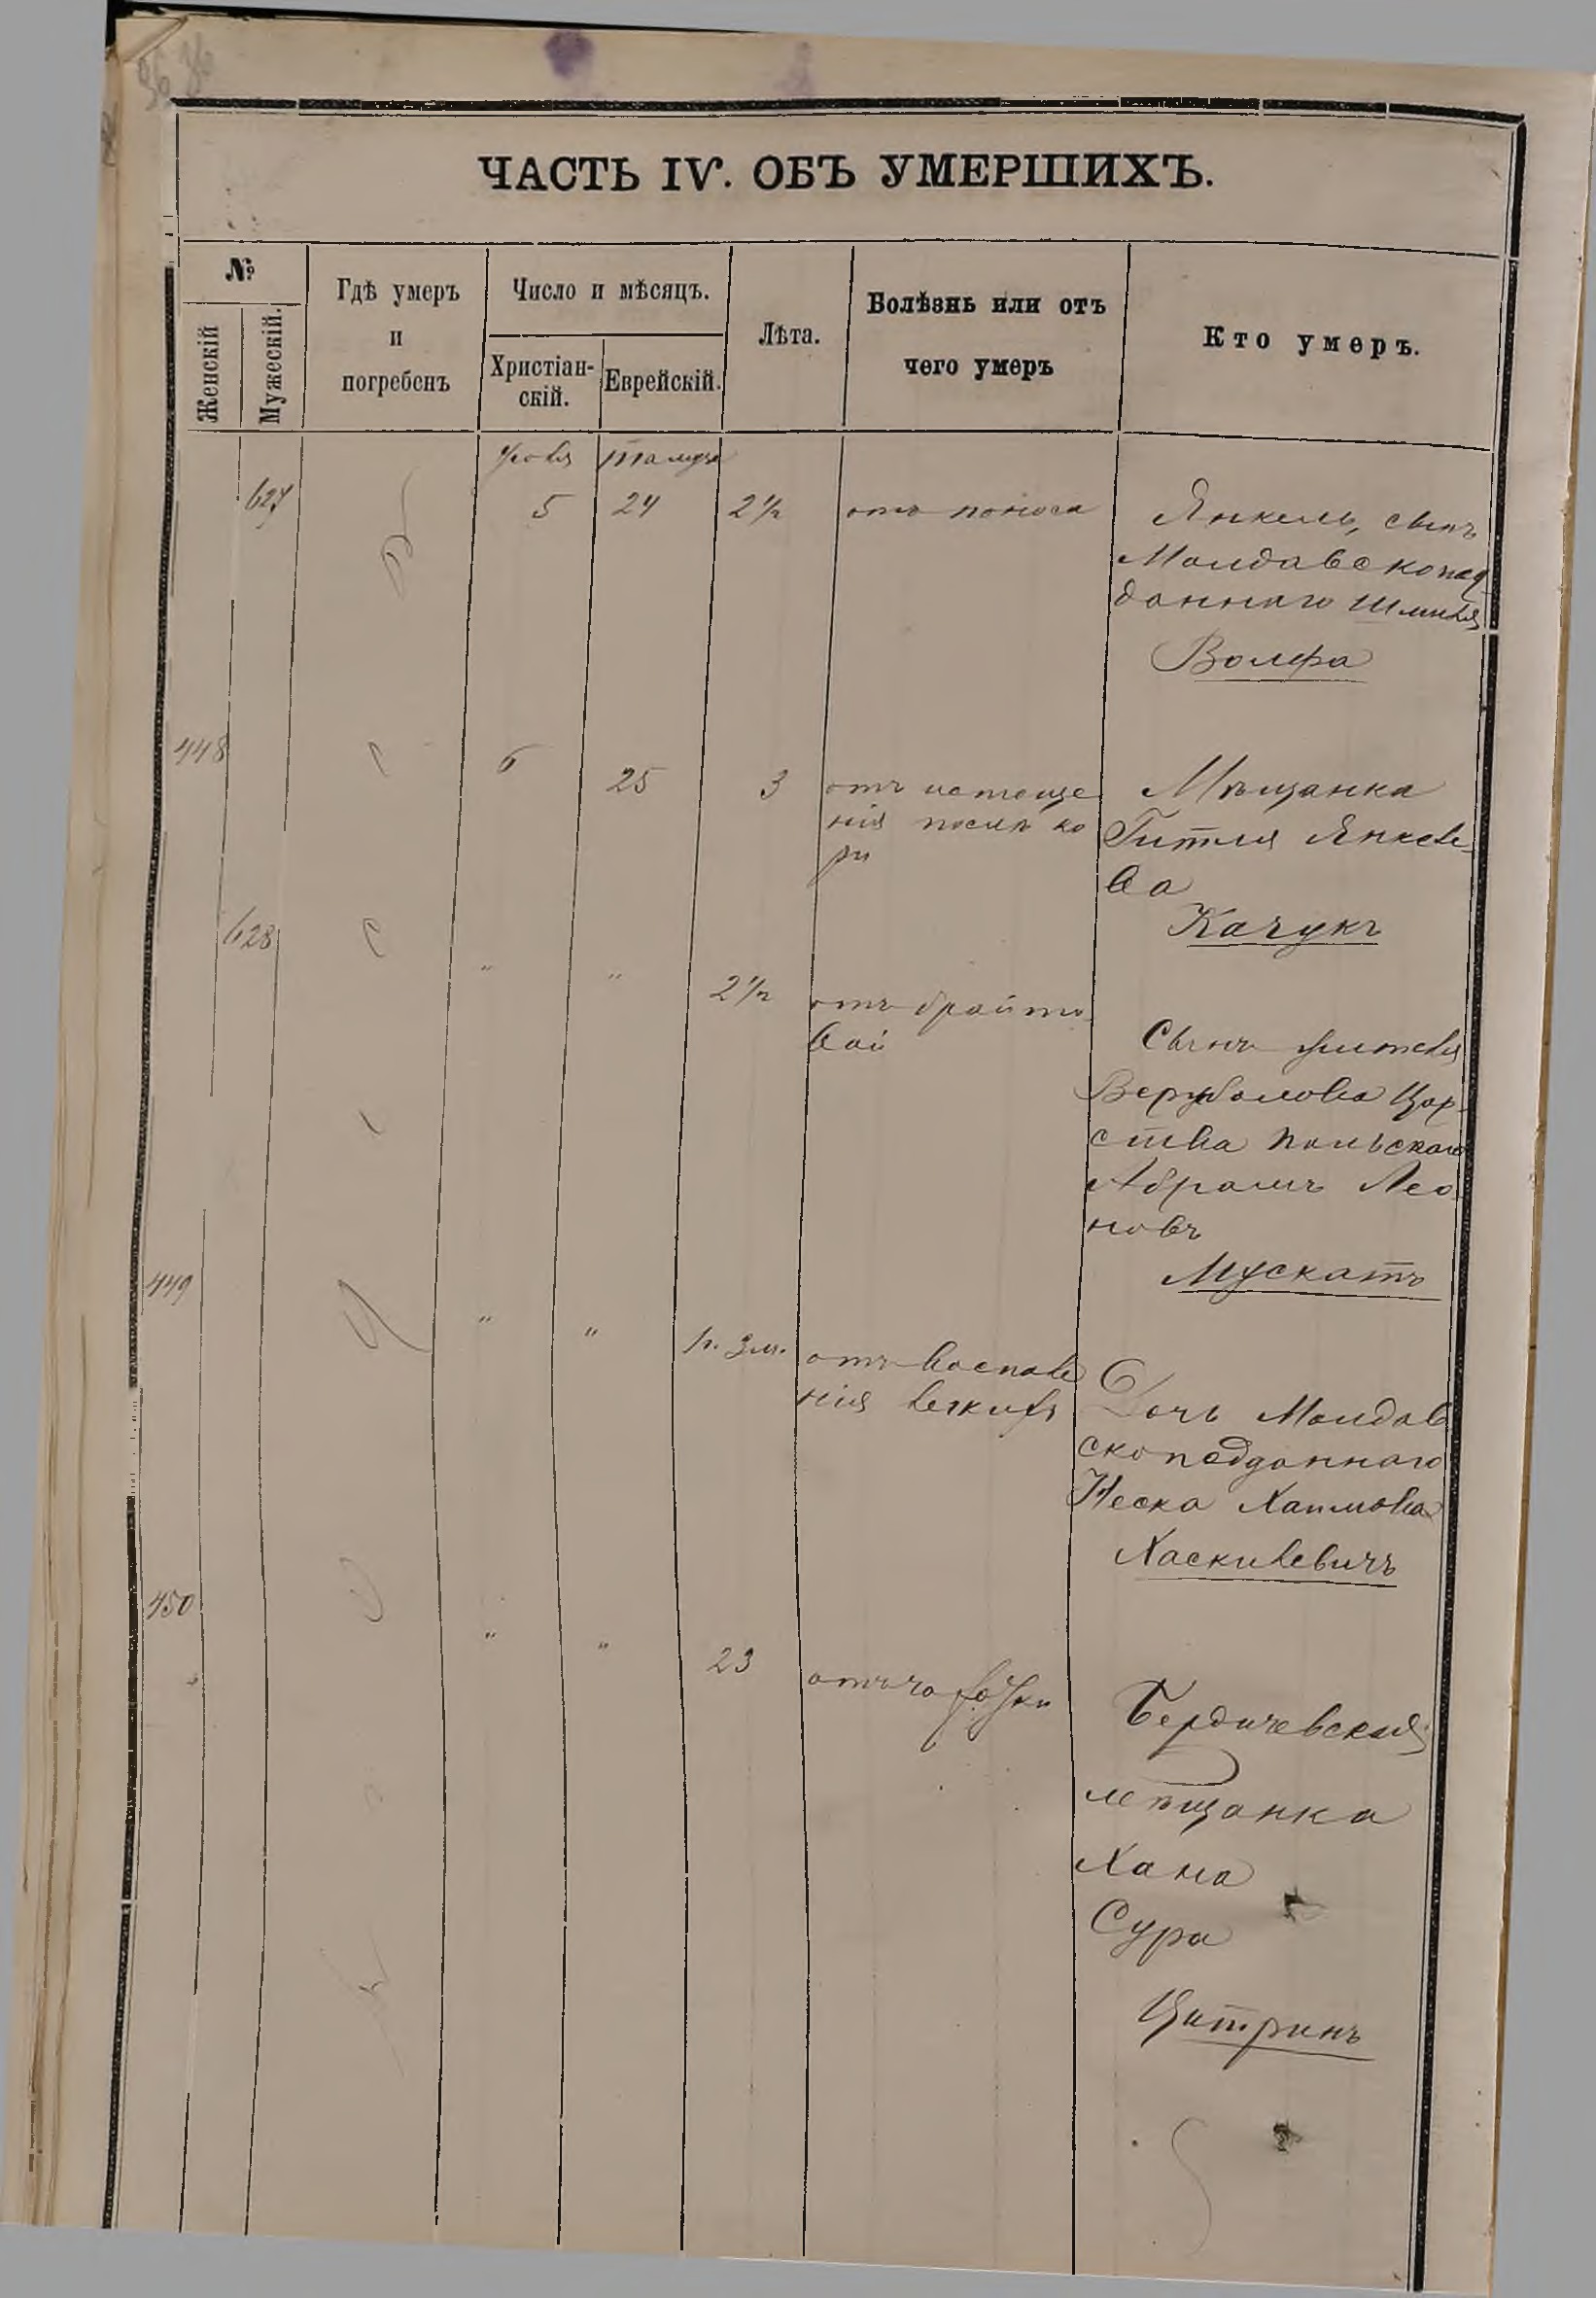 ЧАСТЬ IV. ОБЪ УМЕРШИХЪ.
№
Женскій
Мужескій.
Гдѣ умеръ
и
погребенъ
Число и мѣсяцъ.
Христіан-
скій.
Еврейскій.
Лѣта.
Болѣзнь или отъ
чего умеръ
Кто умеръ.
Іюля Тамуза
627 5 24 2½ отъ поноса Янкель, сынъ
Молдавскопод
даннаго Шмиля
Вольфа
448 6 25 3 отъ истоще Мѣщанка
нія послѣ ко Гитля Янкеле-
ри ва
Качукъ
628 " " 2½ отъ брайто-
вой Сынъ жителя
Вержболова Цар-
ства Польскаго
Абрамъ Лео
новъ
Мускатъ
449 " " 1г. 3м. отъ воспале
нія легкихъ Дочь Молдав
скоподданнаго
Неска Хаимова
Хаскилевичъ
450 " " 23 отъ чахотки Бердичевская
мѣщанка
Хана
Сура
Цитринъ